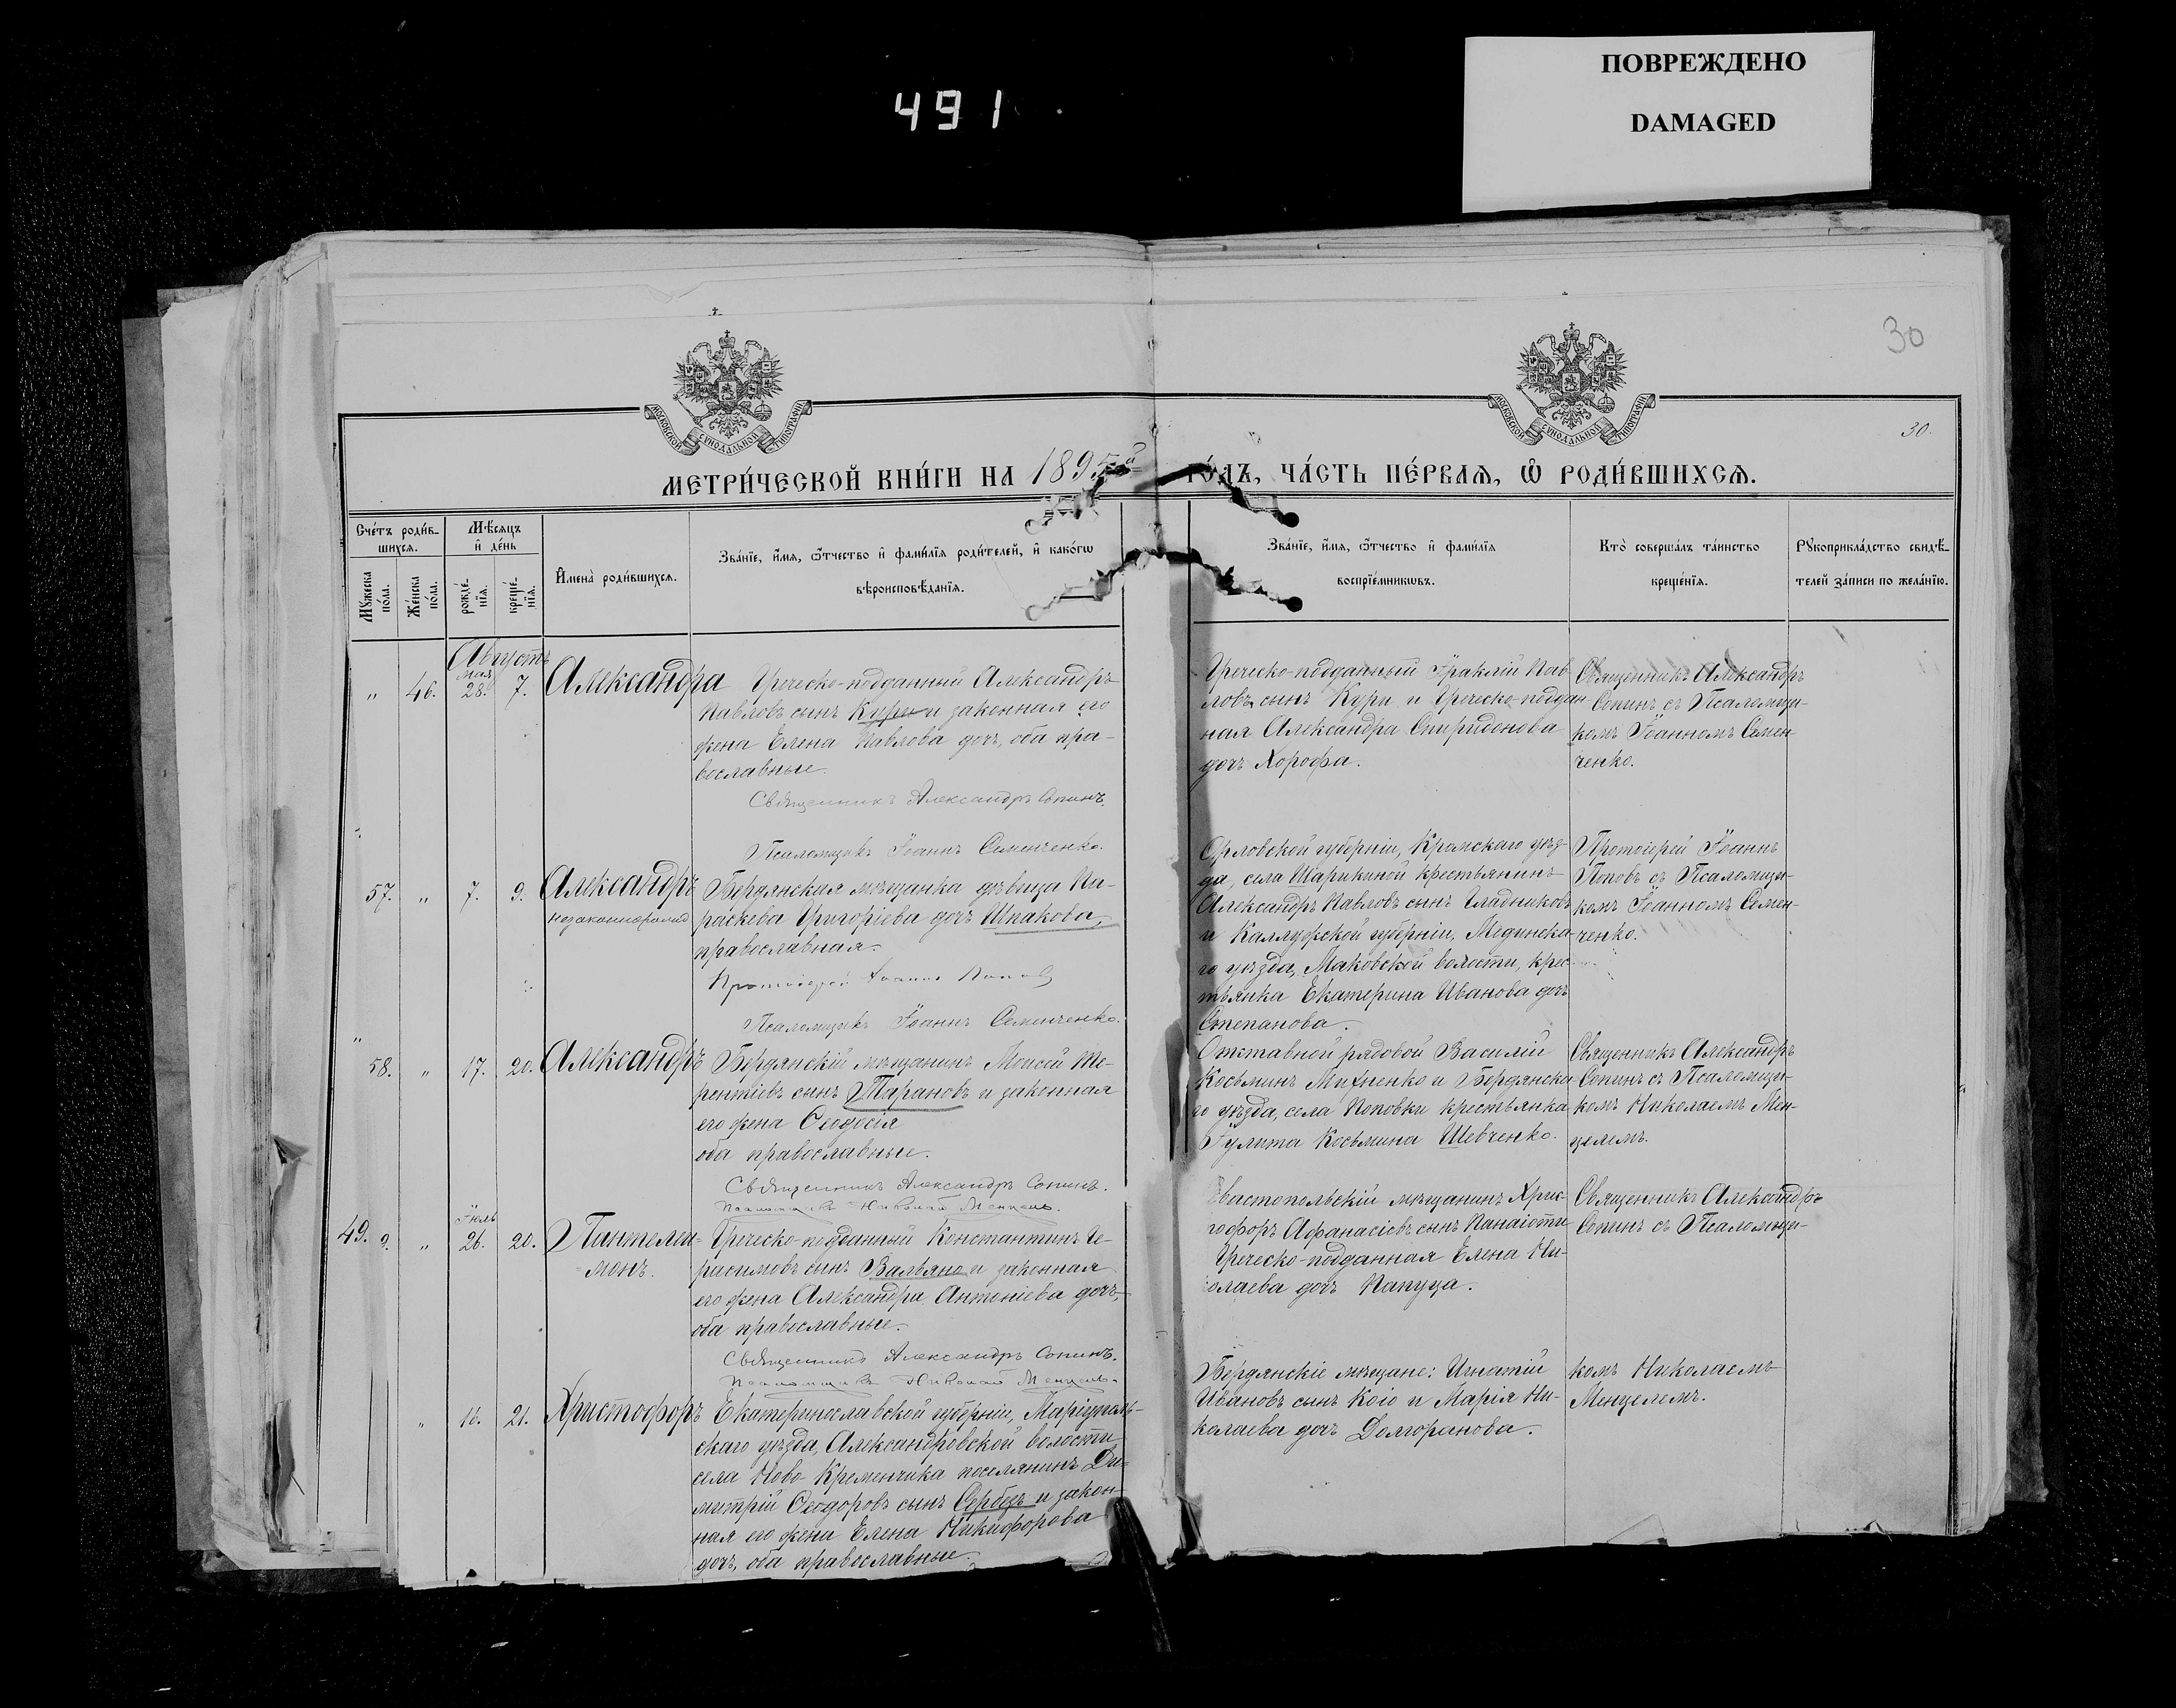 ПОВРЕЖДЕНО
DAMAGED
491
30
30.
МОСКОВСКОЙ СѴНОДАЛЬНОЙ ТИПОГРАФІИ
МОСКОВСКОЙ СѴНОДАЛЬНОЙ ТИПОГРАФІИ
МЕТРИ́ЧЕСКОЙ КНИ́ГИ НА 1895й ГО́ДЪ, ЧА́СТЬ ПЕ́РВАЯ, Ѽ РОДИ́ВШИХСЯ.
Сче́тъ роди́в-
шихся.
Мѣ́сяцъ
и де́нь
Мꙋ́жеска по́ла.
Же́нска по́ла.
рожде́-нїя.
креще́-нїя.
И҆мена̀ роди́вшихся.
Зва́нїе, и҆́мя, ѻ҆́тчество и҆ фами́лїя роди́телей, и҆ како́гѡ
вѣроисповѣ́данїя.
Зва́нїе, и҆́мя, ѻ҆́тчество и҆ фами́лїя
воспрїе́мникѡвъ.
Кто̀ соверша́лъ та́инство
креще́нїя.
Рꙋкоприкла́дство свидѣ́-
телей за́писи по жела́нїю.
Августъ
мая
„ 46. 28. 7. Александра
Греческо-подданный Александръ
Павловъ сынъ Кури и законная его
жена Елена Павлова дочь, оба пра-
вославные.
Священникъ Александръ Сопинъ.
Псаломщикъ Іоаннъ Семенченко.
Греческо-подданный Ираклій Пав-
ловъ сынъ Кури и Греческо-поддан
ная Александра Спиридонова
дочь Хорофа.
Священникъ Александръ
Сопинъ съ Псаломщи-
комъ Іоанномъ Семен-
ченко.
57. „ 7. 9. Александръ
незаконнорожд
Бердянская мѣщанка дѣвица Па-
раскева Григоріева дочь Шпакова,
православная.
Протоіерей Іоаннъ Поповъ
Псаломщикъ Іоаннъ Семенченко.
Орловской губерніи, Кромскаго уѣз-
да, села Шарикиной крестьянинъ
Александръ Павловъ сынъ Гладниковъ
и Каллужской губерніи, Мединска-
го уѣзда, Маковской волости, крес-
тьянка Екатерина Иванова дочь
Степанова.
Протоіерей Іоаннъ
Поповъ съ Псаломщи-
комъ Іоанномъ Семен-
ченко.
58. „ 17. 20. Александръ
Бердянскій мѣщанинъ Моисей Те-
рентіевъ сынъ Тарановъ и законная
его жена Ѳеодосія
оба православные.
Священникъ Александръ Сопинъ.
Псаломщикъ Николай Менцель.
Отставной рядовой Василій
Косьминъ Михненко и Бердянска
го уѣзда, села Поповки крестьянка
Іулита Косьмина Шевченко.
Священникъ Александръ
Сопинъ съ Псаломщи-
комъ Николаемъ Мен-
целемъ.
Іюль
49. 9. „ 26. 20. Пантелеи-
монъ.
Греческо-подданный Константинъ Ге-
расимовъ сынъ Вальяно и законная
его жена Александра Антоніева дочь,
оба православные.
Священникъ Александръ Сопинъ.
Псаломщикъ Николай Менцель.
вастопольскій мѣщанинъ Хрис-
тофоръ Афанасіевъ сынъ Панаіоти
Греческо-подданная Елена Ни-
колаева дочь Папуца.
Священникъ Александръ
Сопинъ съ Псаломщи-
„ 18. 21. Христофоръ
Екатеринославской губерніи, Маріуполь-
скаго уѣзда, Александровской волости
села Ново-Кременчика поселянинъ Ди-
митрій Ѳеодоровъ сынъ Сербедъ и закон-
ная его жена Елена Никифорова
дочь, оба православные.
Бердянскіе мѣщане: Игнатій
Ивановъ сынъ Коіо и Марія Ни-
колаева дочь Долгоранова.
комъ Николаемъ
Менцелемъ.